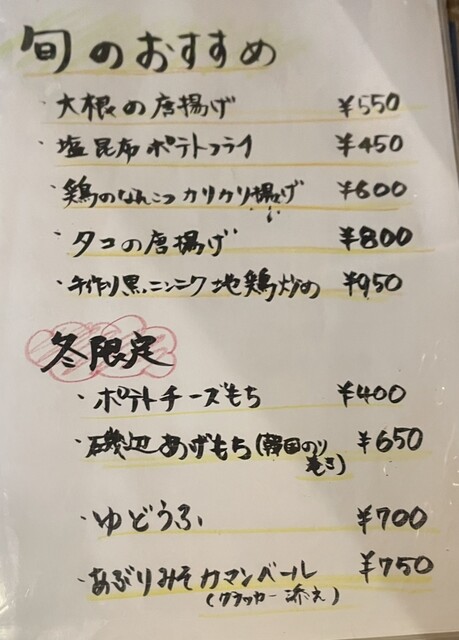 旬のおすすめ
・大根の唐揚げ ¥550
・塩昆布ポテトフライ ¥450
・鶏のなんこつカリカリ揚げ ¥600
・タコの唐揚げ ¥800
・手作り黒ニンニク地鶏炒め ¥950
冬限定
・ポテトチーズもち ¥400
・磯辺あげもち(韓国のり巻き) ¥650
・ゆどうふ ¥700
・あぶりみそカマンベール ¥750
(クラッカー添え)